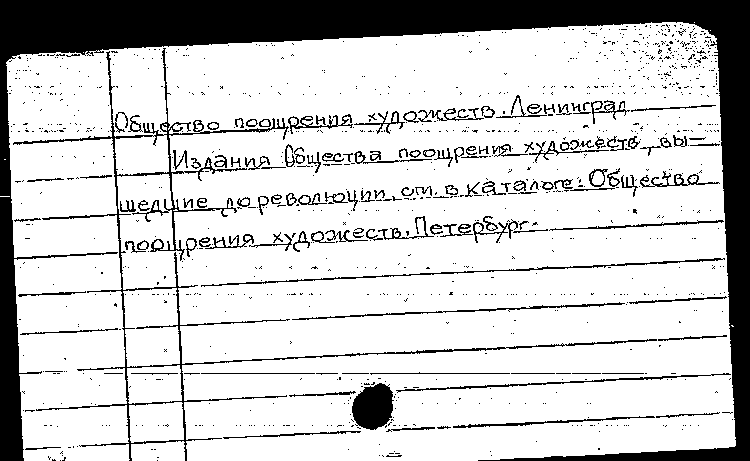 Общество поощрения художеств. Ленинград
Издания Общества поощрения художеств, вы-
шедшие до революции, см. в каталоге: Общество
поощрения художеств. Петербург.